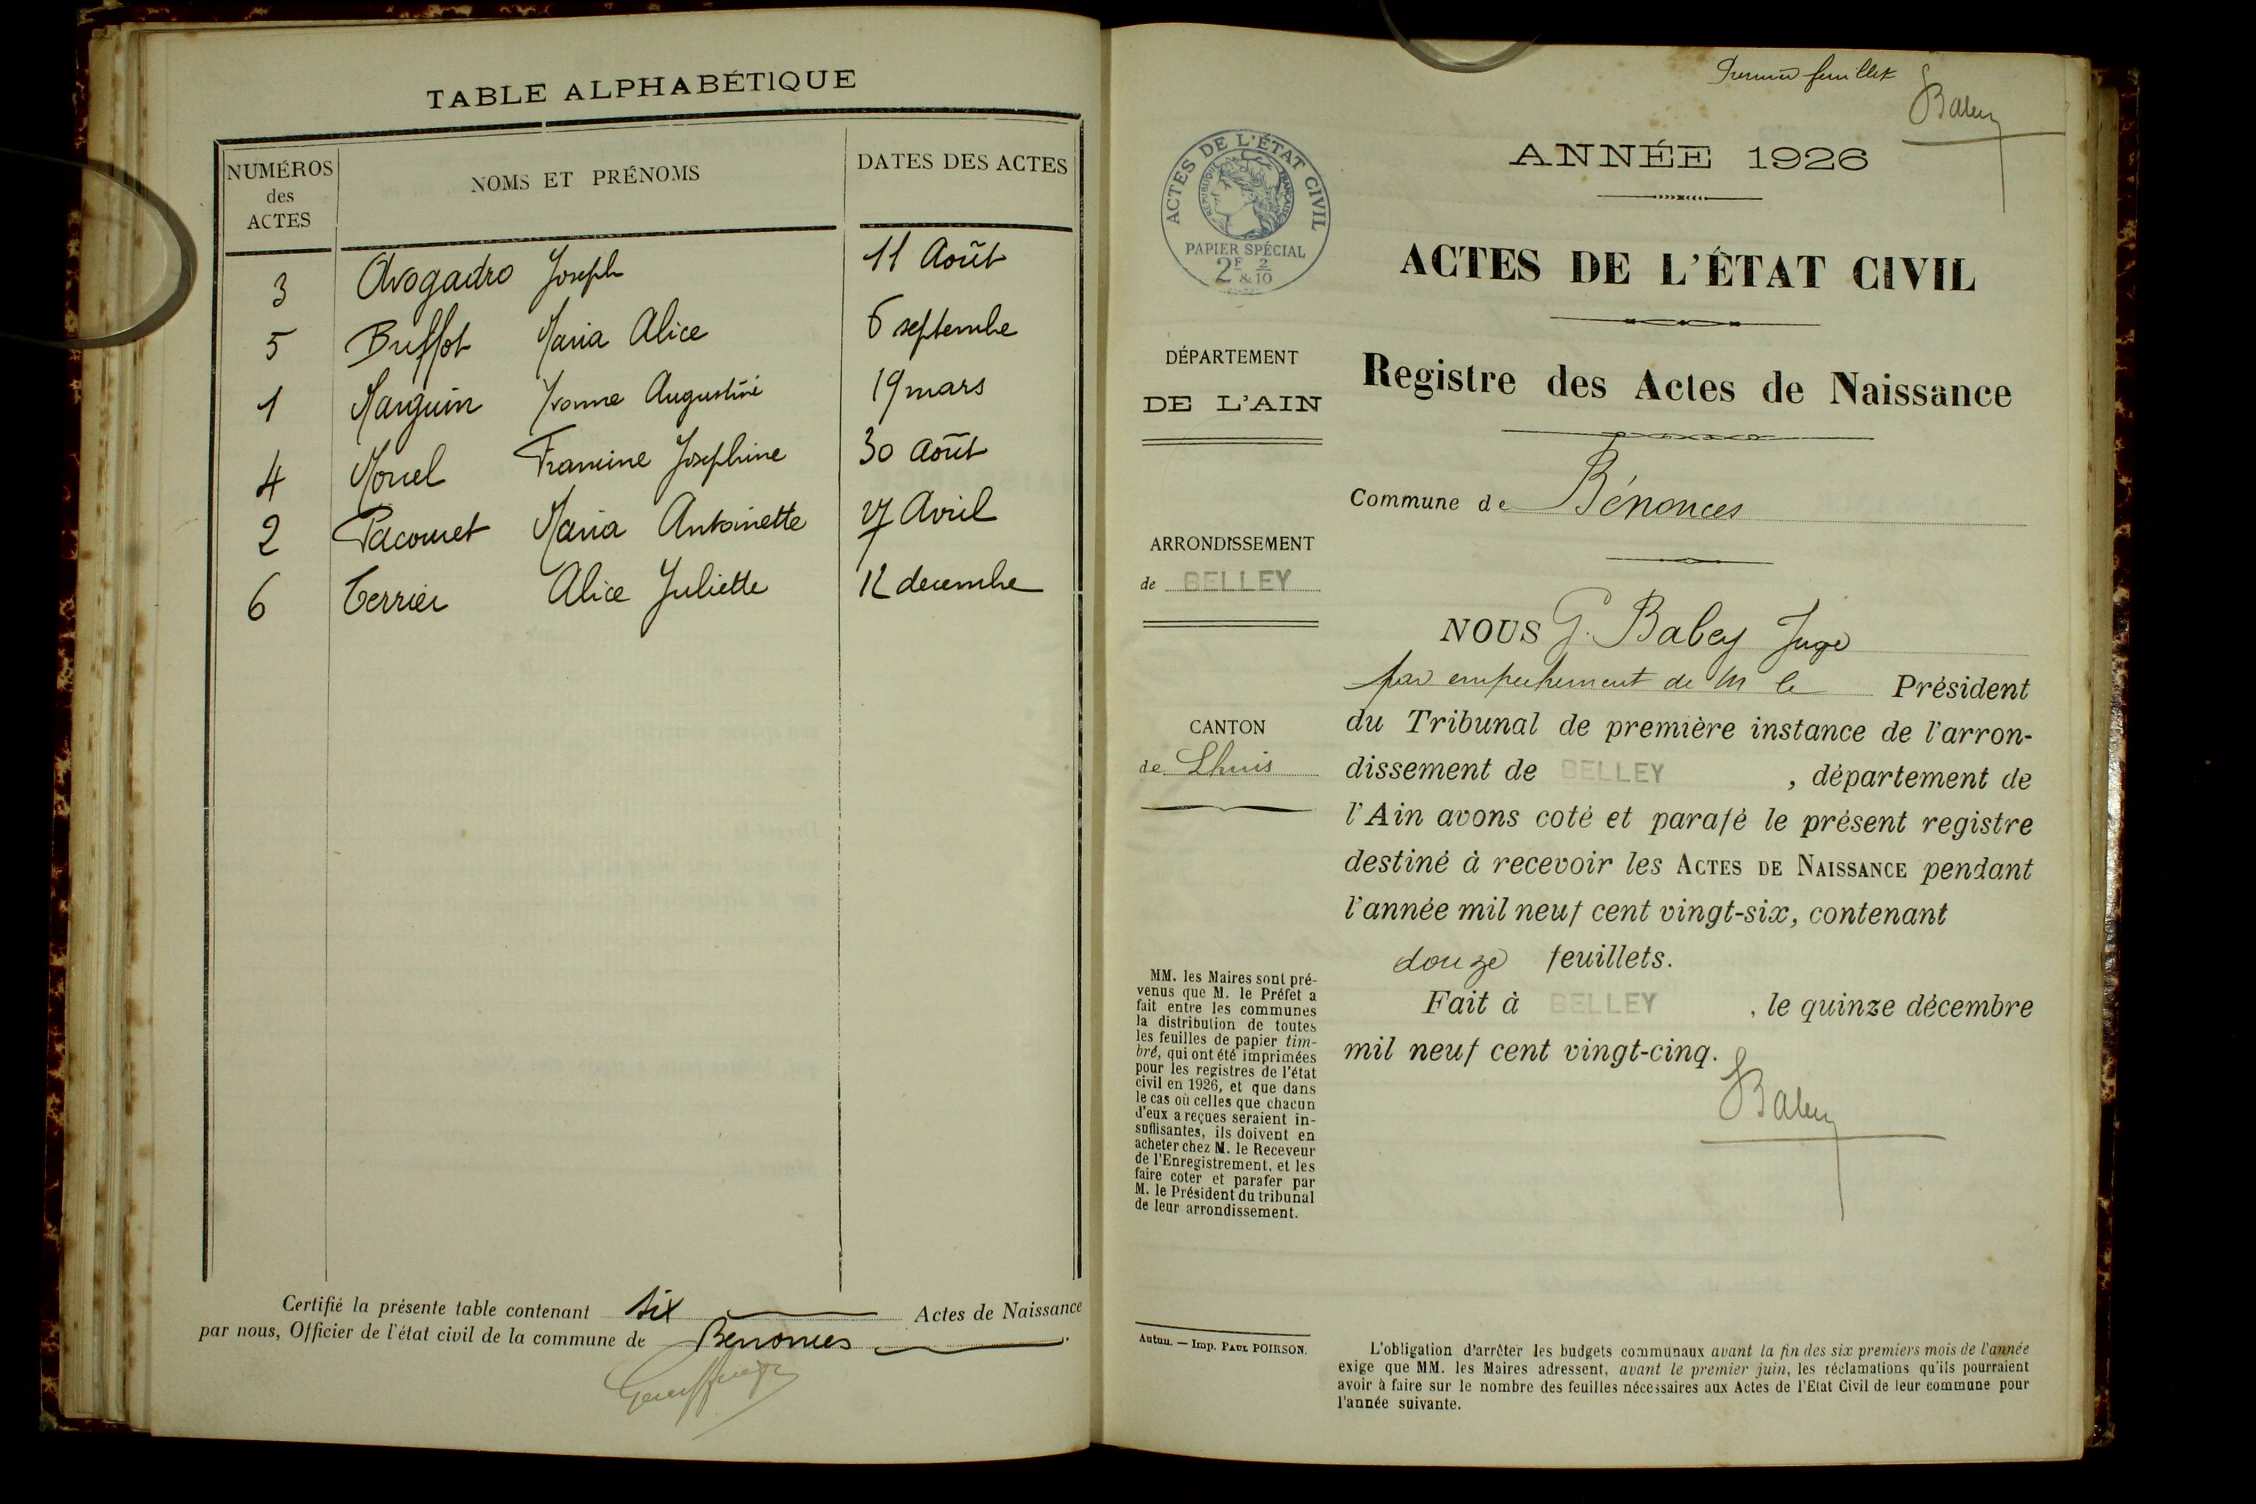 TABLE ALPHABÉTIQUE
NUMÉROS des ACTES
NOMS ET PRÉNOMS
DATES DES ACTES
3 Avogadro Joseph 11 Août
5 Buffot Maria Alice 6 septembre
1 Marguin Yvonne Augustine 19 mars
4 Morel Francine Josephine 30 Août
2 Pacomet Maria Antoinette 27 Avril
6 Terrier Alice Juliette 12 decembre
Certifié la présente table contenant six Actes de Naissance
par nous, Officier de l'état civil de la commune de Benonces
Premier feuillet
Babey
ACTES DE L'ÉTAT CIVIL
RÉPUBLIQUE FRANÇAISE
PAPIER SPÉCIAL
2F & 2/10
ANNÉE 1926
ACTES DE L'ÉTAT CIVIL
Registre des Actes de Naissance
DÉPARTEMENT
DE L'AIN
Commune de Bénonces
ARRONDISSEMENT
de BELLEY
CANTON
de Lhuis
NOUS G. Babey Juge
par empechement de M le Président
du Tribunal de première instance de l'arron-
dissement de BELLEY, département de
l'Ain avons coté et parafé le présent registre
destiné à recevoir les ACTES DE NAISSANCE pendant
l'année mil neuf cent vingt-six, contenant
douze feuillets.
Fait à BELLEY, le quinze décembre
mil neuf cent vingt-cinq.
Babey
MM. les Maires sont pré-
venus que M. le Préfet a
fait entre les communes
la distribution de toutes
les feuilles de papier tim-
bré, qui ont été imprimées
pour les registres de l'état
civil en 1926, et que dans
le cas où celles que chacun
d'eux a reçues seraient in-
suffisantes, ils doivent en
acheter chez M. le Receveur
de l'Enregistrement, et les
faire coter et parafer par
M. le Président du tribunal
de leur arrondissement.
Autun. — Imp. PAUL POIRSON.
L'obligation d'arrêter les budgets communaux avant la fin des six premiers mois de l'année
exige que MM. les Maires adressent, avant le premier juin, les réclamations qu'ils pourraient
avoir à faire sur le nombre des feuilles nécessaires aux Actes de l'Etat Civil de leur commune pour
l'année suivante.